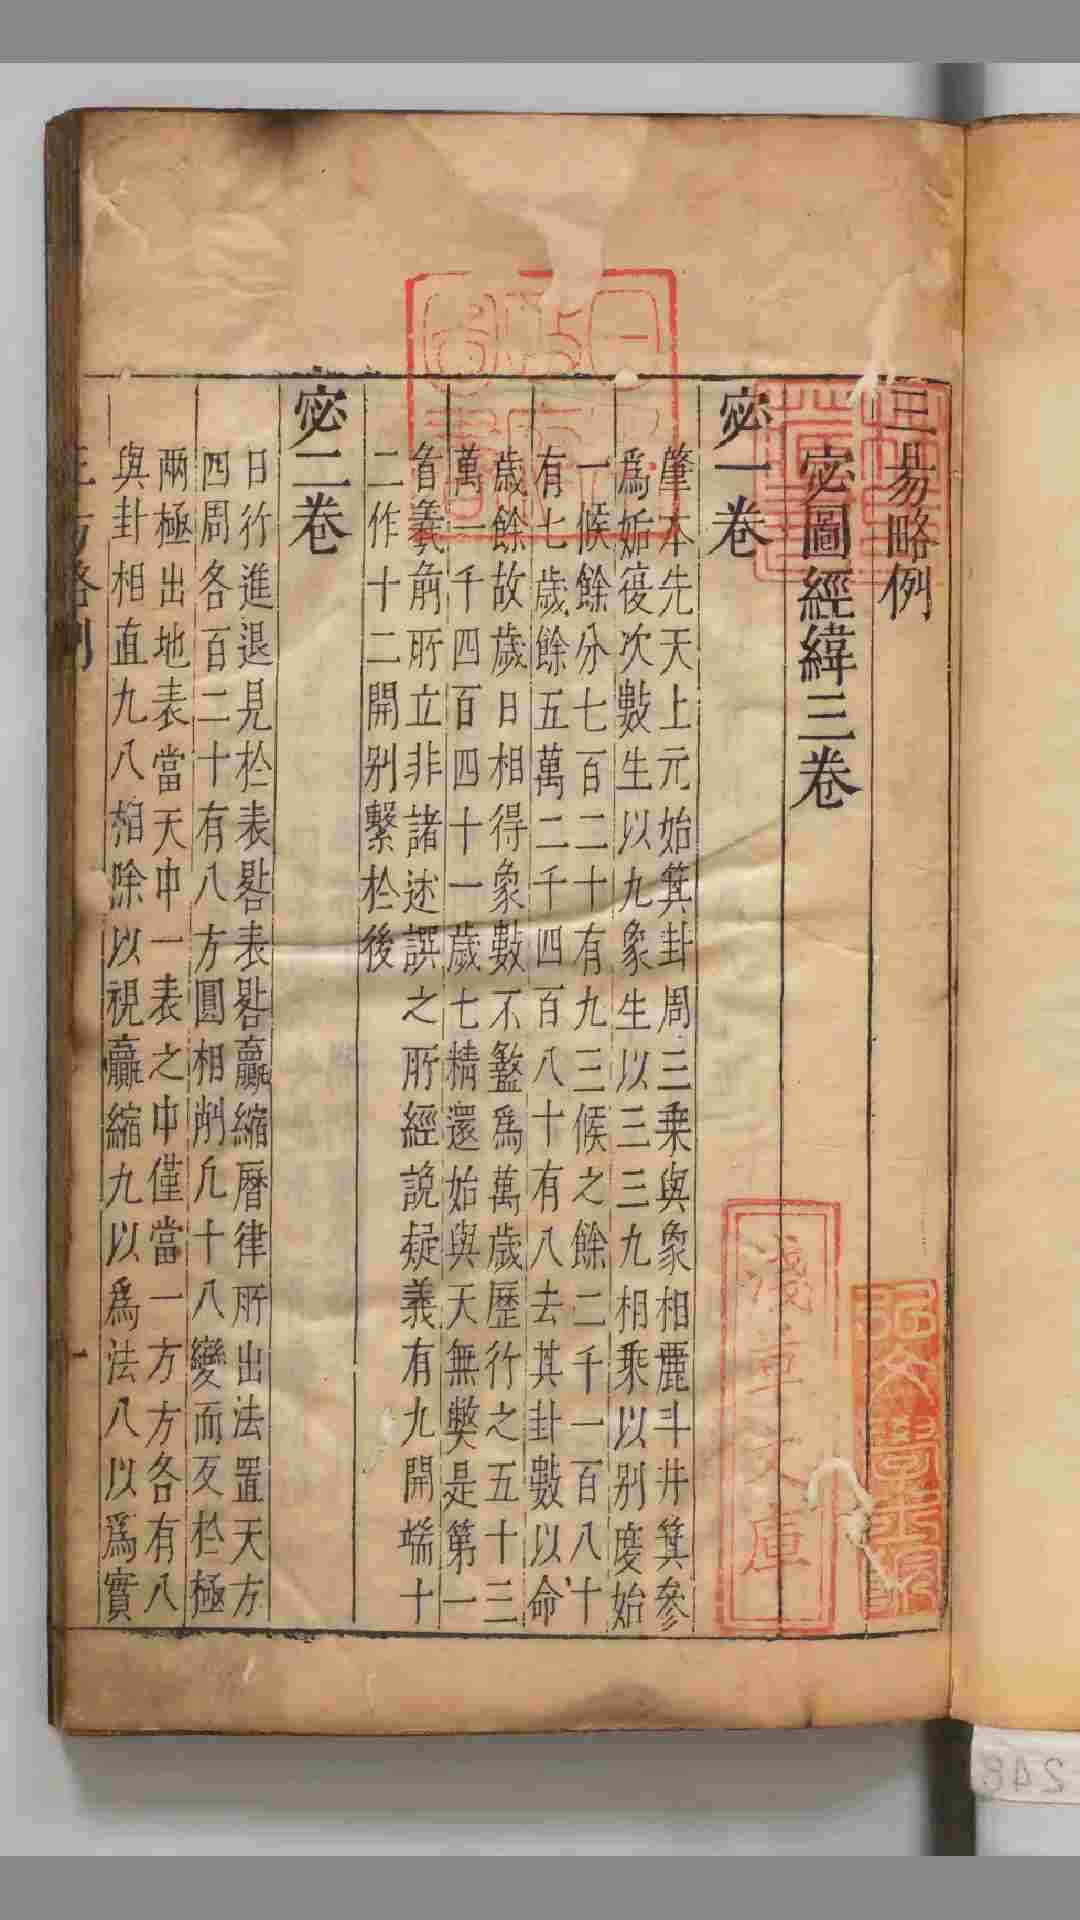 三易略例
宓圖經緯三卷
宓一卷
肇本先天上元始箕卦周三乗與象相麗斗井箕參
爲姤復次數生以九象生以三三九相乗以别度始
一候餘分七百二十有九三候之餘二千一百八十
有七歲餘五萬二千四百八十有八去其卦數以命
歲餘故歲日相得象數不盭爲萬歲歷行之五十三
萬一千四百四十一歲七精還始與天無獘是第一
㫖義前所立非諸述譔之所經說疑義有九開端十
二作十二開别繫於後
宓二卷
日行進退見於表晷表晷贏縮曆律所出法置天方
四周各百二十有八方圓相削凢十八變而反於極
兩極出地表當天中一表之中僅當一方方各有八
與卦相直九八相除以視贏縮九以爲法八以爲實
淺草文庫